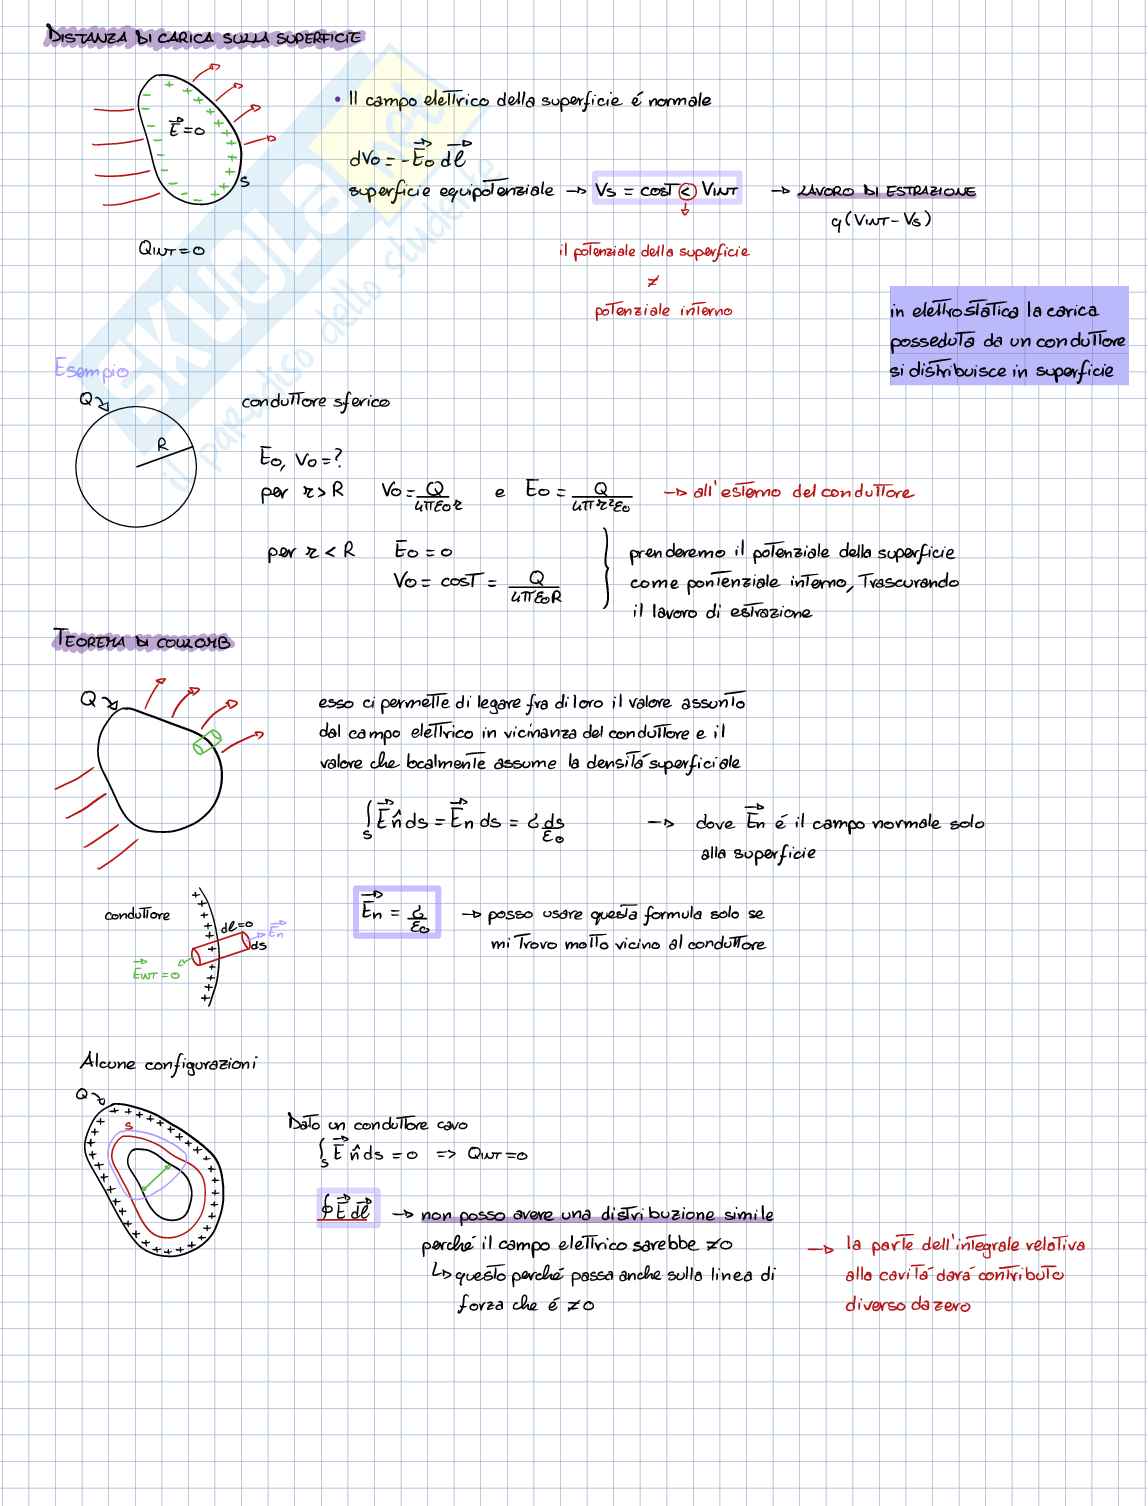 DISTANZA DI CARICA SULLA SUPERFICIE
E⃗ = 0
S
QINT = 0
• Il campo elettrico della superficie é normale
dVo = - E⃗o dl⃗
superficie equipotenziale → Vs = cost < VINT → LAVORO DI ESTRAZIONE
q (VINT - Vs)
il potenziale della superficie
≠
potenziale interno
in elettrostatica la carica
posseduta da un conduttore
si distribuisce in superficie
SKUOLA.net
il paradiso dello studente
Esempio
Q
R
conduttore sferico
Eo, Vo = ?
per r > R Vo = Q/4πεor e Eo = Q/4πr²εo → all'esterno del conduttore
per r < R Eo = 0
Vo = cost = Q/4πεoR
prenderemo il potenziale della superficie
come pontenziale interno, trascurando
il lavoro di estrazione
TEOREMA DI COULOMB
Q
esso ci permette di legare fra di loro il valore assunto
dal campo elettrico in vicinanza del conduttore e il
valore che localmente assume la densitá superficiale
∫s E⃗ n̂ ds = E⃗n ds = σ ds/εo → dove E⃗n é il campo normale solo
alla superficie
conduttore
dl = 0
E⃗n
ds
E⃗INT = 0
E⃗n = σ/εo → posso usare questa formula solo se
mi trovo molto vicino al conduttore
Alcune configurazioni
Q
S
Dato un conduttore cavo
∫s E⃗ n̂ ds = 0 => QINT = 0
∮ E⃗ dl⃗ → non posso avere una distribuzione simile
perché il campo elettrico sarebbe ≠ 0
↳ questo perché passa anche sulla linea di
forza che é ≠ 0
→ la parte dell'integrale relativa
alla cavitá dará contributo
diverso da zero